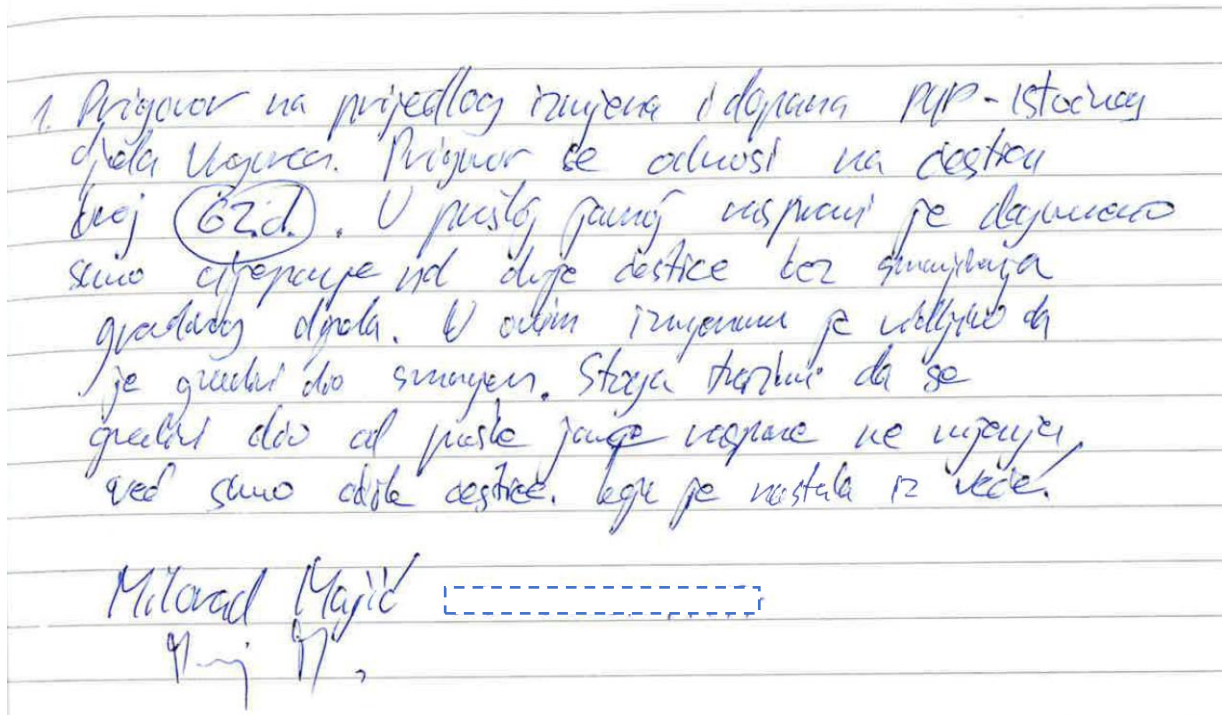 1. Prigovor na prijedlog izmjena i dopuna PUP-istočnog
djela Prigovor se odnosi na česticu
broj 62.d. U prošloj javnoj raspravi je dogovoreno
samo cijepanje od dvije čestice bez smanjivanja
gradivog dijela. U ovim izmjenama je vidljivo da
je gradivi dio smanjen. Stoga tražimo da se
gradivi dio od prošle javne rasprave ne mjenja,
već samo čestice. koja je nastala iz veće.
Milorad Majić